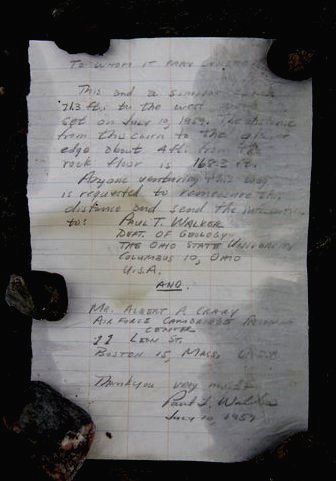 TO WHOM IT MAY CONCERN
This and a similar cairn
21.3 ft. to the west
set on July 10, 1959. The distance
from this cairn to the glacier
edge about 4 ft. from the
rock floor is 168.3 ft.
Anyone venturing this way
is requested to remeasure this
distance and send the information
to: PAUL T. WALKER
DEPT. OF GEOLOGY
THE OHIO STATE UNIVERSITY
COLUMBUS 10, OHIO
U.S.A.
AND
MR. ALBERT P. CRARY
AIR FORCE CAMBRIDGE RESEARCH
CENTER
11 LEON ST.
BOSTON 15, MASS. U.S.A.
Thankyou very much
Paul T. Walker
July 10, 1959